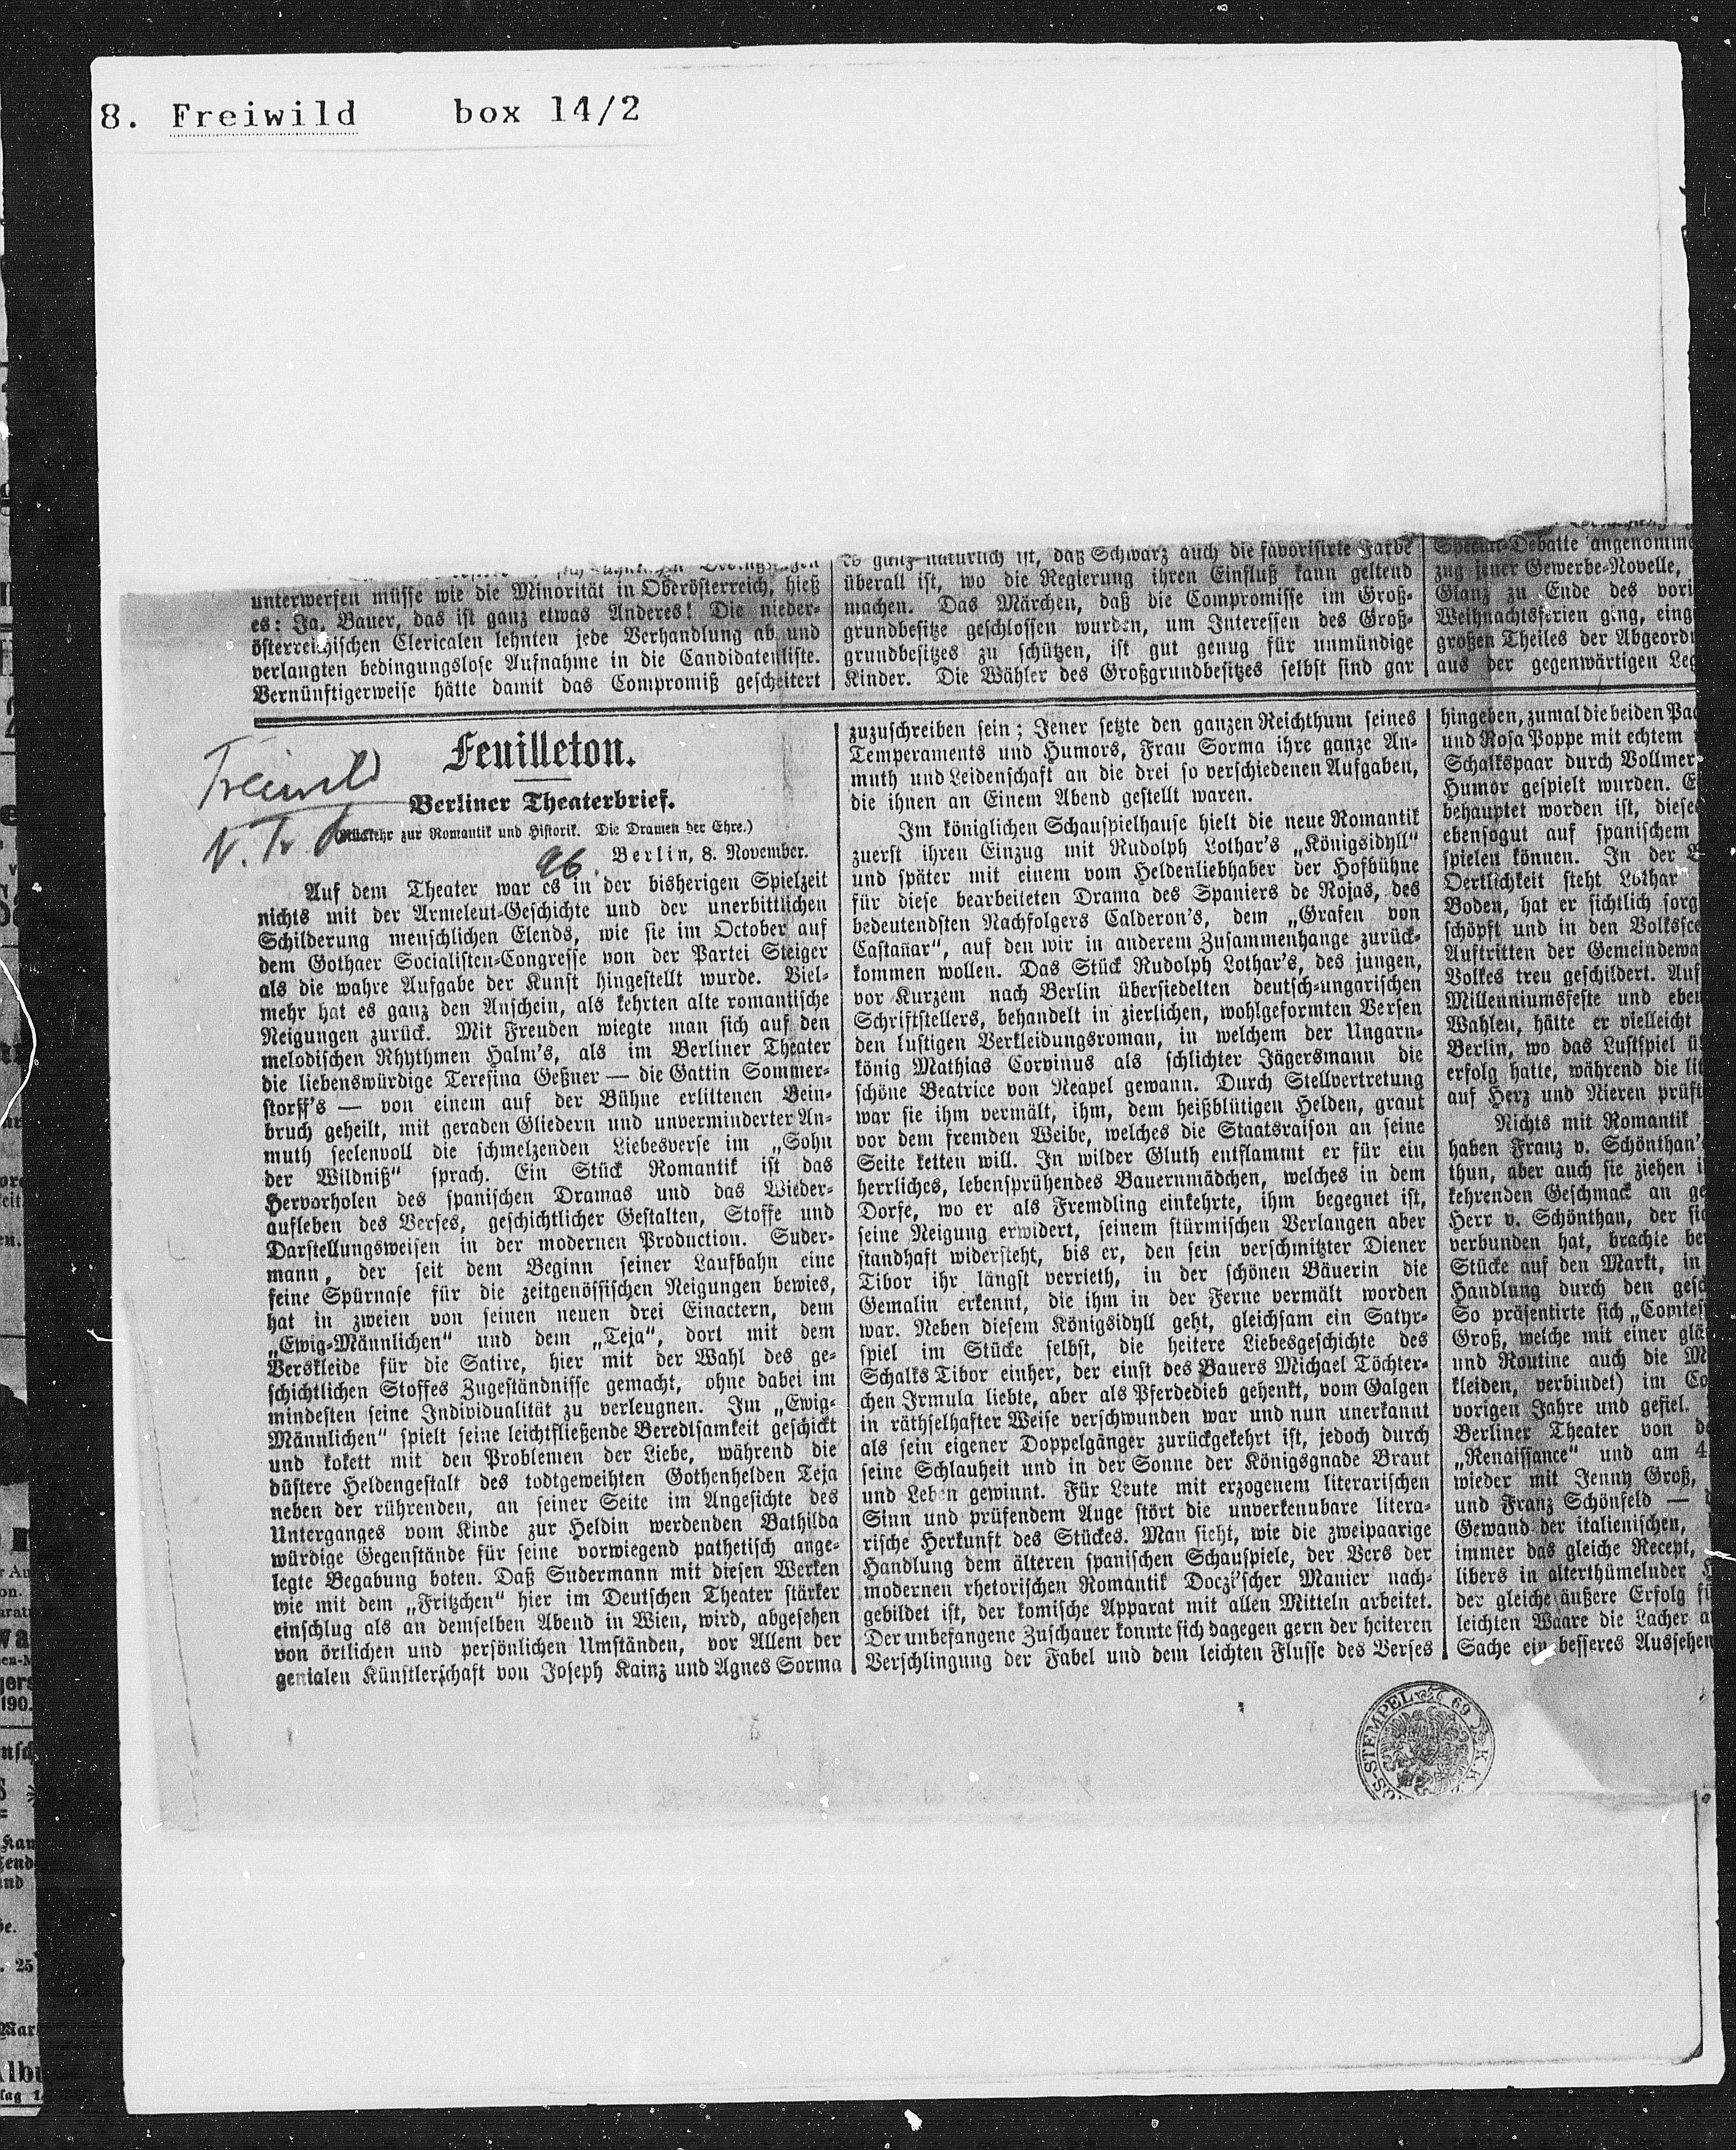 8. Freiwild box 14/2
unterwerfen müsse wie die Minorität in Oberösterreich, hieß
es: Ja, Bauer, das ist ganz etwas Anderes! Die nieder-
österreichischen Clericalen lehnten jede Verhandlung ab und
verlangten bedingungslose Aufnahme in die Candidatenliste.
Vernünftigerweise hätte damit das Compromiß gescheitert
es ganz natürlich ist, daß Schwarz auch die favorisirte Farbe
überall ist, wo die Regierung ihren Einfluß kann geltend
machen. Das Märchen, daß die Compromisse im Groß-
grundbesitze geschlossen wurden, um Interessen des Groß-
grundbesitzes zu schützen, ist gut genug für unmündige
Kinder. Die Wähler des Großgrundbesitzes selbst sind gar
Special-Debatte angenomme
zug jener Gewerbe-Novelle,
Glanz zu Ende des vori
Weihnachtsferien ging, eing
großen Theiles der Abgeord
aus der gegenwärtigen Leg
Freiwild
N. Fr. Pr.
Feuilleton.
Berliner Theaterbrief.
(Rückkehr zur Romantik und Historik. Die Dramen der Ehre.)
96. Berlin, 8. November.
Auf dem Theater war es in der bisherigen Spielzeit
nichts mit der Armeleut-Geschichte und der unerbittlichen
Schilderung menschlichen Elends, wie sie im October auf
dem Gothaer Socialisten-Congresse von der Partei Steiger
als die wahre Aufgabe der Kunst hingestellt wurde. Viel-
mehr hat es ganz den Anschein, als kehrten alte romantische
Neigungen zurück. Mit Freuden wiegte man sich auf den
melodischen Rhythmen Halm's, als im Berliner Theater
die liebenswürdige Teresina Geßner — die Gattin Sommer-
storff's — von einem auf der Bühne erlittenen Bein-
bruch geheilt, mit geraden Gliedern und unverminderter An-
muth seelenvoll die schmelzenden Liebesverse im „Sohn
der Wildniß“ sprach. Ein Stück Romantik ist das
Hervorholen des spanischen Dramas und das Wieder-
aufleben des Verses, geschichtlicher Gestalten, Stoffe und
Darstellungsweisen in der modernen Production. Suder-
mann, der seit dem Beginn seiner Laufbahn eine
feine Spürnase für die zeitgenössischen Neigungen bewies,
hat in zweien von seinen neuen drei Einactern, dem
„Ewig-Männlichen“ und dem „Teja“, dort mit dem
Verskleide für die Satire, hier mit der Wahl des ge-
schichtlichen Stoffes Zugeständnisse gemacht, ohne dabei im
mindesten seine Individualität zu verleugnen. Im „Ewig-
Männlichen“ spielt seine leichtfließende Beredtsamkeit geschickt
und kokett mit den Problemen der Liebe, während die
düstere Heldengestalt des todtgeweihten Gothenhelden Teja
neben der rührenden, an seiner Seite im Angesichte des
Unterganges vom Kinde zur Heldin werdenden Bathilda
würdige Gegenstände für seine vorwiegend pathetisch ange-
legte Begabung boten. Daß Sudermann mit diesen Werken
wie mit dem „Fritzchen“ hier im Deutschen Theater stärker
einschlug als an demselben Abend in Wien, wird, abgesehen
von örtlichen und persönlichen Umständen, vor Allem der
genialen Künstlerschaft von Joseph Kainz und Agnes Sorma
zuzuschreiben sein; Jener setzte den ganzen Reichthum seines
Temperaments und Humors, Frau Sorma ihre ganze An-
muth und Leidenschaft an die drei so verschiedenen Aufgaben,
die ihnen an Einem Abend gestellt waren.
Im königlichen Schauspielhause hielt die neue Romantik
zuerst ihren Einzug mit Rudolph Lothar's „Königsidyll“
und später mit einem vom Heldenliebhaber der Hofbühne
für diese bearbeiteten Drama des Spaniers de Rojas, des
bedeutendsten Nachfolgers Calderon's, dem „Grafen von
Castañar“, auf den wir in anderem Zusammenhange zurück-
kommen wollen. Das Stück Rudolph Lothar's, des jungen,
vor Kurzem nach Berlin übersiedelten deutsch-ungarischen
Schriftstellers, behandelt in zierlichen, wohlgeformten Versen
den lustigen Verkleidungsroman, in welchem der Ungarn-
könig Mathias Corvinus als schlichter Jägersmann die
schöne Beatrice von Neapel gewann. Durch Stellvertretung
war sie ihm vermält, ihm, dem heißblütigen Helden, graut
vor dem fremden Weibe, welches die Staatsraison an seine
Seite ketten will. In wilder Gluth entflammt er für ein
herrliches, lebensprühendes Bauernmädchen, welches in dem
Dorfe, wo er als Fremdling einkehrte, ihm begegnet ist,
seine Neigung erwidert, seinem stürmischen Verlangen aber
standhaft widersteht, bis er, den sein verschmitzter Diener
Tibor ihr längst verrieth, in der schönen Bäuerin die
Gemalin erkennt, die ihm in der Ferne vermält worden
war. Neben diesem Königsidyll geht, gleichsam ein Satyr-
spiel im Stücke selbst, die heitere Liebesgeschichte des
Schalks Tibor einher, der einst des Bauers Michael Töchter-
chen Irmula liebte, aber als Pferdedieb gehenkt, vom Galgen
in räthselhafter Weise verschwunden war und nun unerkannt
als sein eigener Doppelgänger zurückgekehrt ist, jedoch durch
seine Schlauheit und in der Sonne der Königsgnade Braut
und Leben gewinnt. Für Leute mit erzogenem literarischen
Sinn und prüfendem Auge stört die unverkennbare litera-
rische Herkunft des Stückes. Man sieht, wie die zweipaarige
Handlung dem älteren spanischen Schauspiele, der Vers der
modernen rhetorischen Romantik Doczi'scher Manier nach-
gebildet ist, der komische Apparat mit allen Mitteln arbeitet.
Der unbefangene Zuschauer konnte sich dagegen gern der heiteren
Verschlingung der Fabel und dem leichten Flusse des Verses
hingeben, zumal die beiden Pa
und Rosa Poppe mit echtem
Schalkspaar durch Vollmer
Humor gespielt wurden. E
behauptet worden ist, diese
ebensogut auf spanischem
spielen können. In der B
Oertlichkeit steht Lothar
Boden, hat er sichtlich sorg
schöpft und in den Volkssce
Auftritten der Gemeindewa
Volkes treu geschildert. Auf
Millenniumsfeste und eben
Wahlen, hätte er vielleicht
Berlin, wo das Lustspiel ü
erfolg hatte, während die lit
auf Herz und Nieren prüft
Nichts mit Romantik
haben Franz v. Schönthan'
thun, aber auch sie ziehen i
kehrenden Geschmack an ge
Herr v. Schönthan, der sic
verbunden hat, brachte be
Stücke auf den Markt, in
Handlung durch den gesc
So präsentirte sich „Comtes
Groß, welche mit einer glä
und Routine auch die M
kleiden, verbindet) im Co
vorigen Jahre und gefiel.
Berliner Theater von d
„Renaissance“ und am 4
wieder mit Jenny Groß,
und Franz Schönfeld —
Gewand der italienischen,
immer das gleiche Recept,
libers in alterthümelnder
der gleiche äußere Erfolg f
leichten Waare die Lacher a
Sache ein besseres Aussehen
S-STEMPEL 69 K.K.